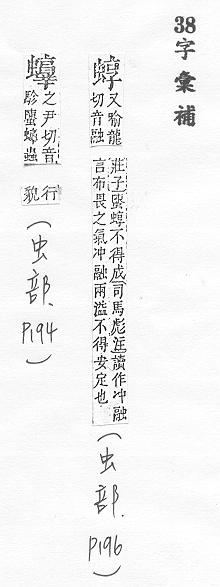 38字彙補
蜳
又喻龍
切音融
莊子䗥蜳不得成司馬彪注讀作冲融
言布畏之氣冲融兩溢不得安定也
(虫部. P196)
之尹切音
蟲
行
貌
(虫部. P194)